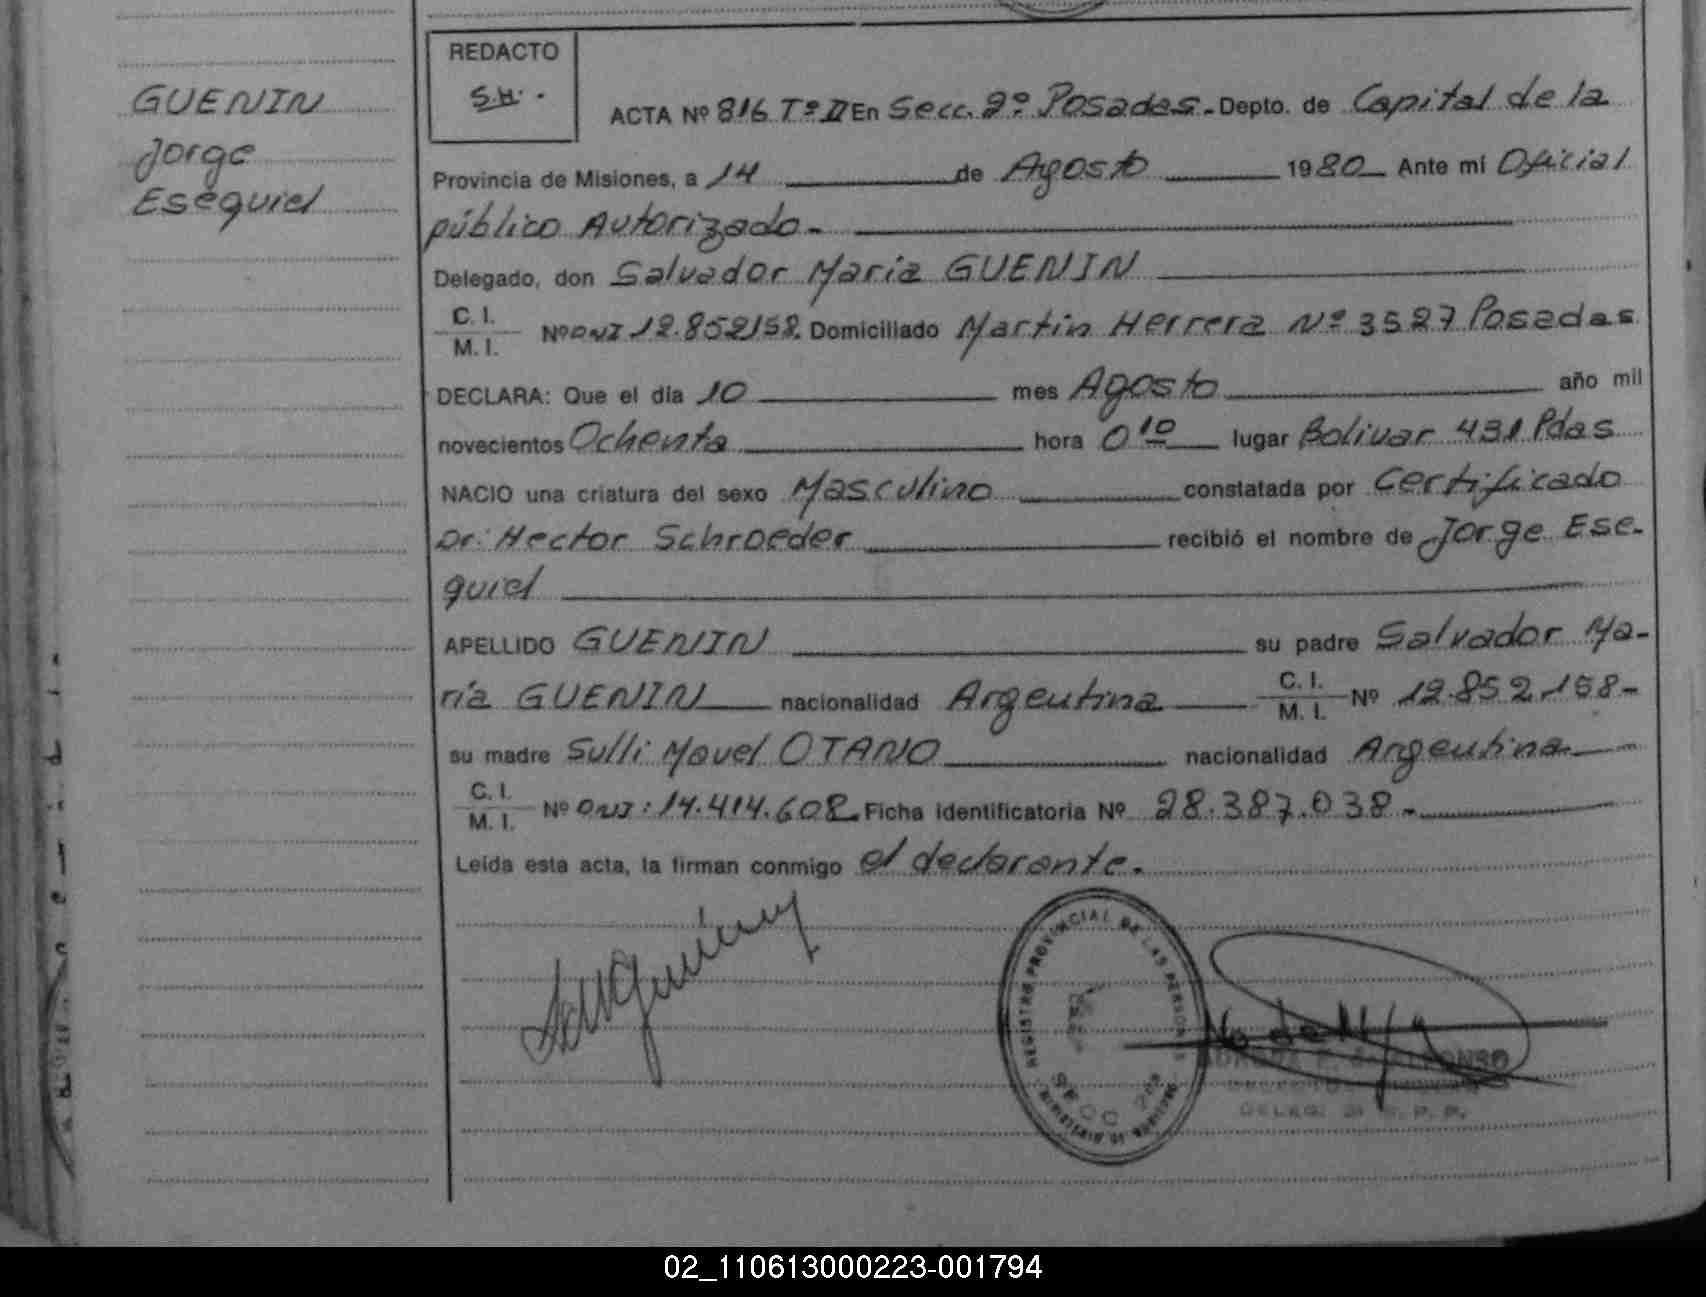 GUENIN
Jorge
Esequiel
REDACTO
S.H.
ACTA Nº 816 Tº II En Secc. 2º Posadas.- Depto. de Capital de la
Provincia de Misiones, a 14 de Agosto 1980 Ante mí Oficial
público Autorizado.-
Delegado, don Salvador Maria GUENIN
C. I.
M. I.
Nº DNI 12.852158. Domiciliado Martin Herrera Nº 3527 Posadas
DECLARA: Que el día 10 mes Agosto año mil
novecientos Ochenta hora 0 10 lugar Bolivar 431 Pdas
NACIO una criatura del sexo Masculino constatada por Certificado
Dr. Hector Schroeder recibió el nombre de Jorge Ese-
quiel
APELLIDO GUENIN su padre Salvador Ma-
ría GUENIN nacionalidad Argentina C. I. M. I. Nº 12.852.158-
su madre Sulli Mavel OTANO nacionalidad Argentina
C. I.
M. I.
Nº DNI: 14.414.602 Ficha identificatoria Nº 28.387.038.-
Leída esta acta, la firman conmigo el declarante.
REGISTRO PROVINCIAL DE LAS PERSONAS
DELEG.
02_110613000223-001794